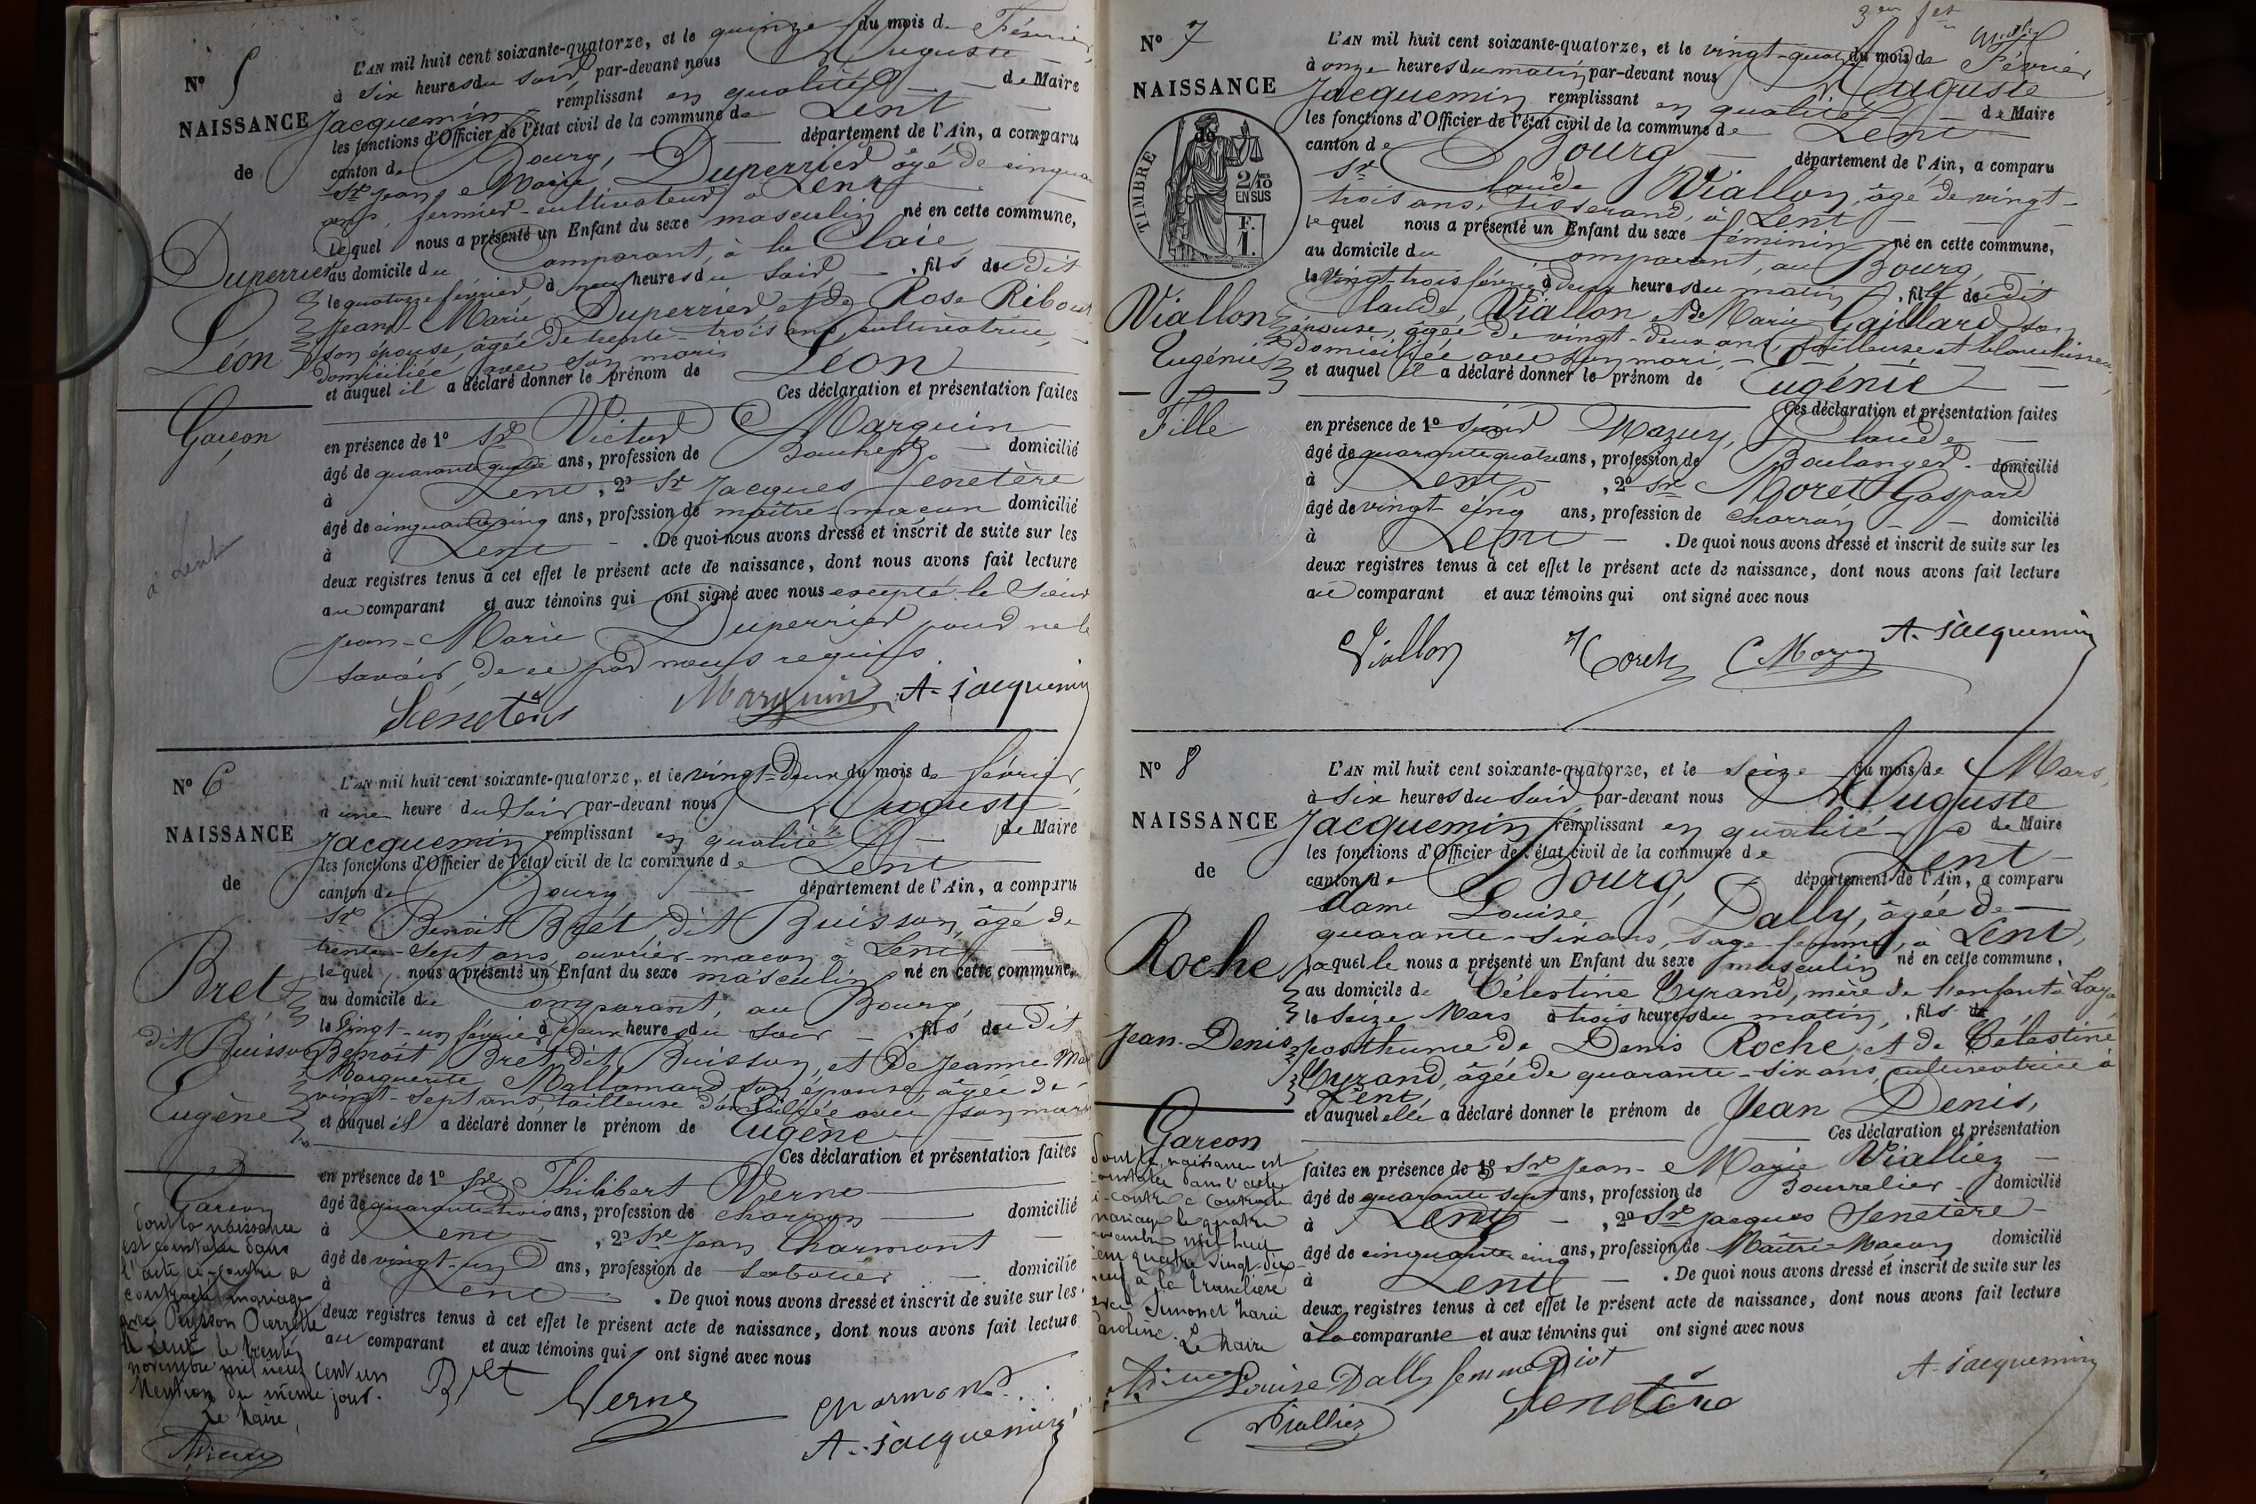 N° 5
NAISSANCE
de
Duperrier
Léon
Garçon
à Lent
L'AN mil huit cent soixante-quatorze, et le quinze du mois d Février
à six heures du soir par-devant nous Auguste
Jacquemin remplissant en qualité de Maire
les fonctions d'Officier de l'état civil de la commune de Lent
canton de Bourg, département de l'Ain, a comparu
Sr Jean-Marie Duperrier âgé de cinquante
ans, fermier-cultivateur à Lent
lequel nous a présenté un Enfant du sexe masculin né en cette commune,
au domicile du Comparant, à la Claie,
le quatorze février à heures du soir, fils du dit
Jean-Marie Duperrier et de Rose Ribout
son épouse, âgée de trente-trois ans, cultivatrice,
domiciliée avec son mari
et auquel il a déclaré donner le prénom de Léon
Ces déclaration et présentation faites
en présence de 1° Sr Victor Marguin
âgé de quarante quatre ans, profession de Boucher domicilié
à Lent, 2° Sr Jacques Senetère
âgé de cinquante cinq ans, profession de maître-maçon domicilié
à Lent. De quoi nous avons dressé et inscrit de suite sur les
deux registres tenus à cet effet le présent acte de naissance, dont nous avons fait lecture
au comparant et aux témoins qui ont signé avec nous excepté le Sieur
Jean-Marie Duperrier pour ne le
savoir, de ce par nous requis.
Senetère Marguin A. Jacquemin
N° 6
NAISSANCE
de
Bret
dit Buisson
Eugène
Garçon
dont la naissance
est constatée dans
l'acte ci-contre a
contracté mariage
avec Peysson Pierrette
à Lent le trente
novembre mil neuf cent un
Mention du même jour.
Le Maire,
L'AN mil huit cent soixante-quatorze, et le vingt-deux du mois de février,
à une heure du Soir par-devant nous Auguste
Jacquemin remplissant en qualité de Maire
les fonctions d'Officier de l'état civil de la commune de Lent
canton de Bourg département de l'Ain, a comparu
Sr Benoît Bret, dit Buisson, âgé de
trente-sept ans, ouvrier-maçon à Lent
lequel nous a présenté un Enfant du sexe masculin né en cette commune,
au domicile du Comparant, au Bourg,
le vingt-un février à heure du soir, fils du dit
Benoît Bret dit Buisson, et de Jeanne Marie
Marguerite Mallamard son épouse, âgée de
vingt-sept ans, tailleuse domiciliée avec son mari
et auquel il a déclaré donner le prénom de Eugène
Ces déclaration et présentation faites
en présence de 1° Sr Philibert Verne
âgé de quarante trois ans, profession de charron domicilié
à Lent, 2° Sr Jean Charmont
âgé de vingt-un ans, profession de sabotier domicilié
à Lent. De quoi nous avons dressé et inscrit de suite sur les
deux registres tenus à cet effet le présent acte de naissance, dont nous avons fait lecture
au comparant et aux témoins qui ont signé avec nous
Bret Verne Charmont
A. Jacquemin
N° 7
NAISSANCE
de
TIMBRE
2/10 EN SUS
F. 1.
Viallon
Eugénie
Fille
L'AN mil huit cent soixante-quatorze, et le vingt-quatre du mois de Février
à onze heures du matin par-devant nous Auguste
Jacquemin remplissant en qualité de Maire
les fonctions d'Officier de l'état civil de la commune de Lent
canton de Bourg département de l'Ain, a comparu
Sr Claude Viallon, âgé de vingt-
trois ans, tisserand, à Lent
lequel nous a présenté un Enfant du sexe féminin né en cette commune,
au domicile du Comparant, au Bourg,
le vingt-trois février à deux heures du matin, fille du dit
Claude Viallon et de Marie Gaillard son
épouse, âgée de vingt-deux ans, tailleuse et blanchisseuse,
domiciliée avec son mari,
et auquel il a déclaré donner le prénom de Eugénie
Ces déclaration et présentation faites
en présence de 1° Sieur Mazuy, Claude
âgé de quarante quatre ans, profession de Boulanger domicilié
à Lent, 2° Sr Moret Gaspard
âgé de vingt cinq ans, profession de charron domicilié
à Lent. De quoi nous avons dressé et inscrit de suite sur les
deux registres tenus à cet effet le présent acte de naissance, dont nous avons fait lecture
au comparant et aux témoins qui ont signé avec nous
Viallon Moret C Mazuy A. Jacquemin
N° 8
NAISSANCE
de
Roche
Jean-Denis
Garçon
dont la naissance est
constatée dans l'acte
ci-contre a contracté
mariage le quatre
novembre mil huit
cent quatre vingt-dix-
neuf à la Tranclière
avec Simonet Marie
Caroline.
Le Maire
L'AN mil huit cent soixante-quatorze, et le seize du mois de Mars,
à six heures du soir, par-devant nous Auguste
Jacquemin remplissant en qualité de Maire
les fonctions d'Officier de l'état civil de la commune de Lent
canton de Bourg, département de l'Ain, a comparu
dame Louise Dally, âgée de
quarante-six ans, sage-femme, à Lent,
laquelle nous a présenté un Enfant du sexe masculin né en cette commune,
au domicile de Célestine Cyrand, mère de l'enfant à Laya,
le seize Mars à trois heures du matin, fils
posthume de Denis Roche, et de Célestine
Cyrand, âgée de quarante-six ans, cultivatrice à
Lent,
et auquel elle a déclaré donner le prénom de Jean Denis,
Ces déclaration et présentation
faites en présence de 1° Sr Jean-Marie Vialliez
âgé de quarante sept ans, profession de Bourrelier domicilié
à Lent, 2° Sr Jacques Senetère
âgé de cinquante cinq ans, profession de Maître-Maçon domicilié
à Lent. De quoi nous avons dressé et inscrit de suite sur les
deux registres tenus à cet effet le présent acte de naissance, dont nous avons fait lecture
à la comparante et aux témoins qui ont signé avec nous
Louise Dally femme Diot Senetère A. Jacquemin
Vialliez